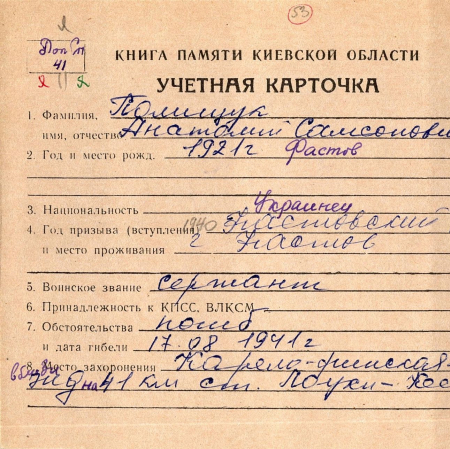 53
Доп Сп
41
Я Я
КНИГА ПАМЯТИ КИЕВСКОЙ ОБЛАСТИ
УЧЕТНАЯ КАРТОЧКА
1. Фамилия, Полищук
имя, отчество Анатолий Самсонови
2. Год и место рожд. 1921г Фастов
3. Национальность Украинец
4. Год призыва (вступления) 1940 Фастовский
и место проживания г Фастов
5. Воинское звание сержант
6. Принадлежность к КПСС, ВЛКСМ
7. Обстоятельства погиб
и дата гибели 17.08 1941г
8. Место захоронения Карело-финская
на 41 км ст. Лоухи-